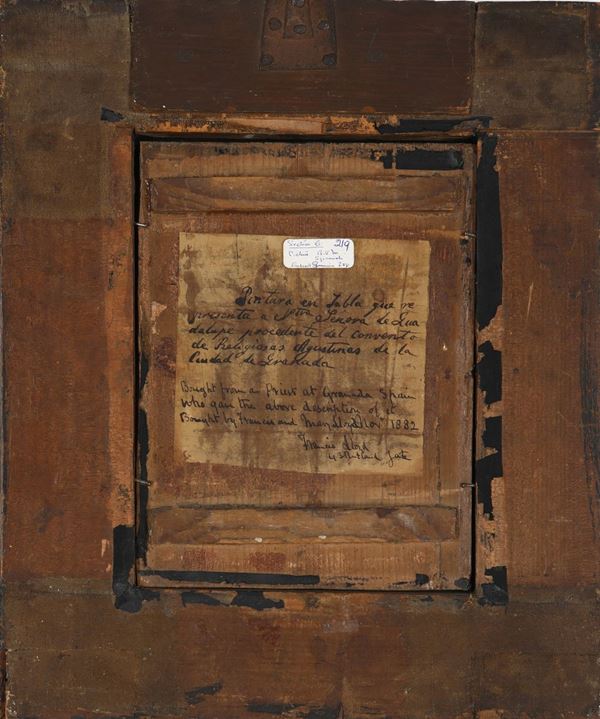 Section G. 219
Pintura en Tabla que re
presenta a Ntra Señora de Gua
dalupe procedente del convento
de Religiosas Agustinas de la
Ciudad de Granada
Bought from a Priest at Granada Spain
who gave the above description of it
Bought by Francis and Mary Lloyd Nov 1882
Francis Lloyd
43 Rutland Gate